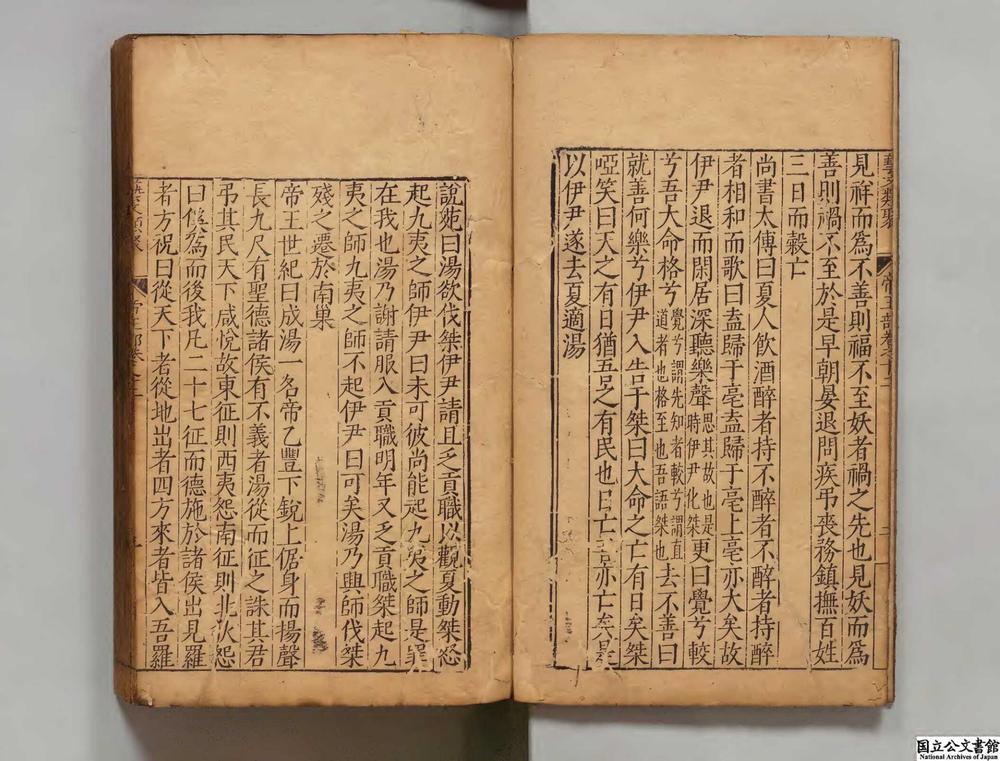 藝文類聚 帝王部卷之十二 二
見祥而為不善則福不至妖者禍之先也見妖而為
善則禍不至於是早朝晏退問疾弔喪務鎮撫百姓
三日而穀亡
尚書太傳曰夏人飲酒醉者持不醉者不醉者持醉
者相和而歌曰盍歸于亳盍歸于亳上亳亦大矣故
伊尹退而閑居深聽樂聲思其故也是時伊尹化桀更曰覺兮較
兮吾大命格兮覺兮謂先知者較兮謂直道者也格至也吾語桀也去不善曰
就善何樂兮伊尹入告于桀曰大命之亡有日矣桀
啞笑曰天之有日猶吾之有民也日亡吾亦亡矣是
以伊尹遂去夏適湯
說苑曰湯欲伐桀伊尹請且乏貢職以觀夏動桀怒
起九夷之師伊尹曰未可彼尚能起九夷之師是罪
在我也湯乃謝請服入貢職明年又乏貢職桀起九
夷之師九夷之師不起伊尹曰可矣湯乃興師伐桀
殘之遷於南巢
帝王世紀曰成湯一名帝乙豐下銳上倨身而揚聲
長九尺有聖德諸侯有不義者湯從而征之誅其君
弔其民天下咸悅故東征則西夷怨南征則北狄怨
曰奚為而後我凡二十七征而德施於諸侯出見羅
者方祝曰從天下者從地出者四方來者皆入吾羅
国立公文書館
National Archives of Japan